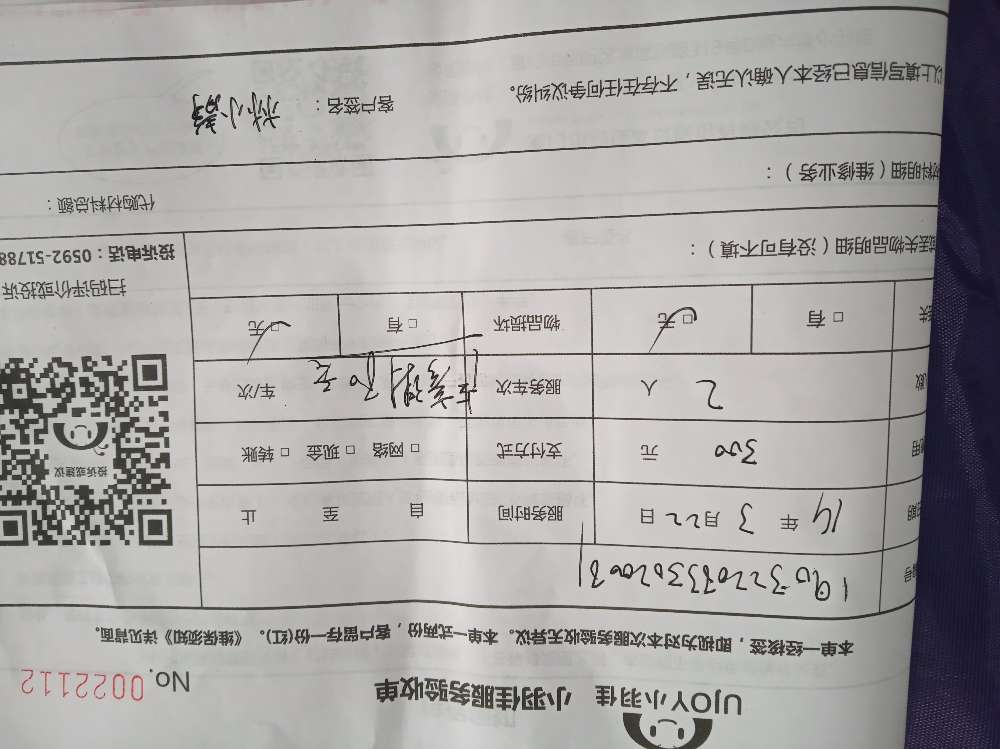 UJOY小羽佳 小羽佳服务验收单
No. 0022112
本单一经核签，即视为对本次服务验收无异议。本单一式两份，客户留存一份(红)。《维保须知》详见背面。
号
期 14 年 3 月 22 日 服务时间 自 至 止
用 300 元 支付方式 □ 网络 □ 现金 □ 转账
数 2 人 服务车次 车/次
失 □ 有 □ 无 物品损坏 □ 有 □ 无
投诉或建议
扫码评价或投诉
投诉电话：0592-51788
失物品明细（没有可不填）：
料明细（维修业务）：
代购材料总额：
以上填写信息已经本人确认无误，不存在任何争议纠纷。
客户签名：